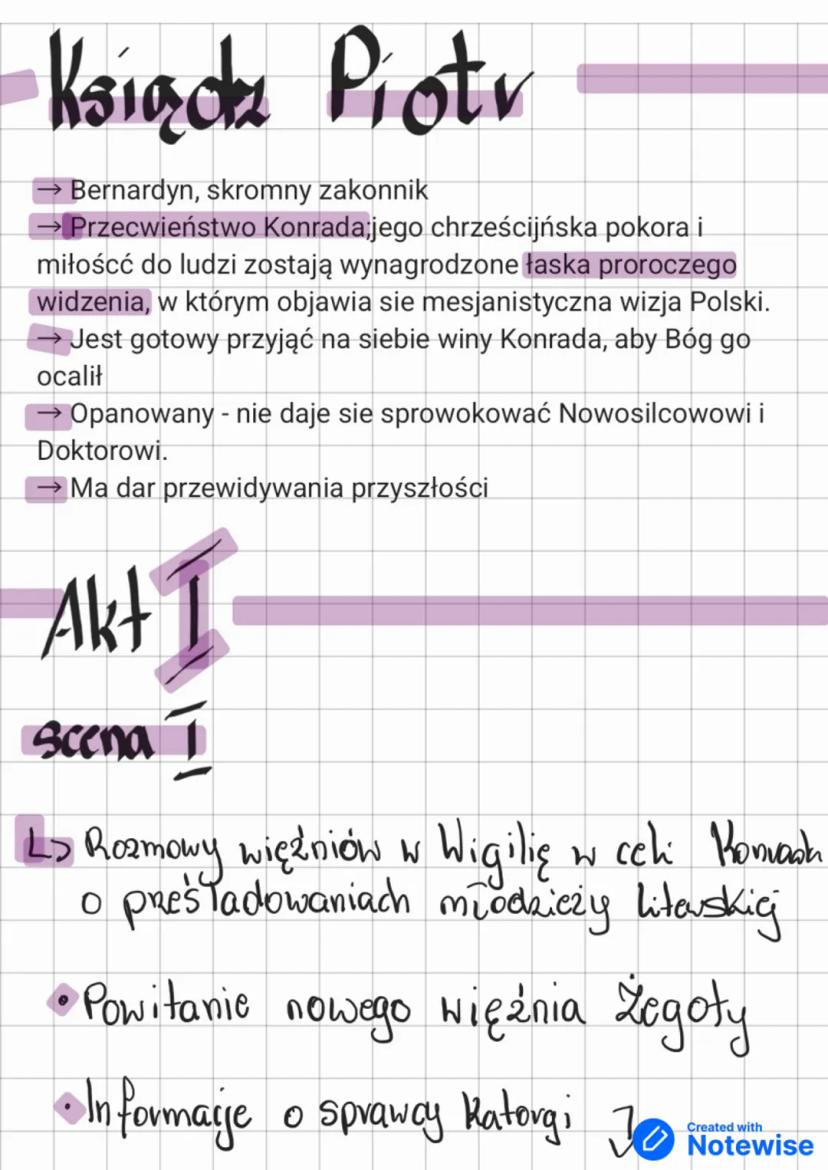 Ksiądz Piotr
→ Bernardyn, skromny zakonnik
→ Przecwieństwo Konrada;jego chrześcijńska pokora i
miłoścć do ludzi zostają wynagrodzone łaska proroczego
widzenia, w którym objawia sie mesjanistyczna wizja Polski.
→ Jest gotowy przyjąć na siebie winy Konrada, aby Bóg go
ocalił
→ Opanowany - nie daje sie sprowokować Nowosilcowowi i
Doktorowi.
→ Ma dar przewidywania przyszłości
Akt I
scena I
↳ Rozmowy więźniów w Wigilię w celi
o prześladowaniach młodzieży litewskiej
• Powitanie nowego więźnia Żegoty
• Informacje o sprawcy Katorgi
Created with
Notewise